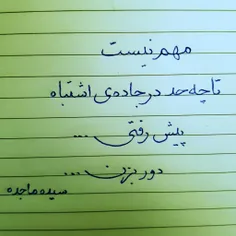 مهم نیست
تا چه حد در جاده‌ی اشتباه
پیش رفتی ...
دور بزن ...
سیده ماجده